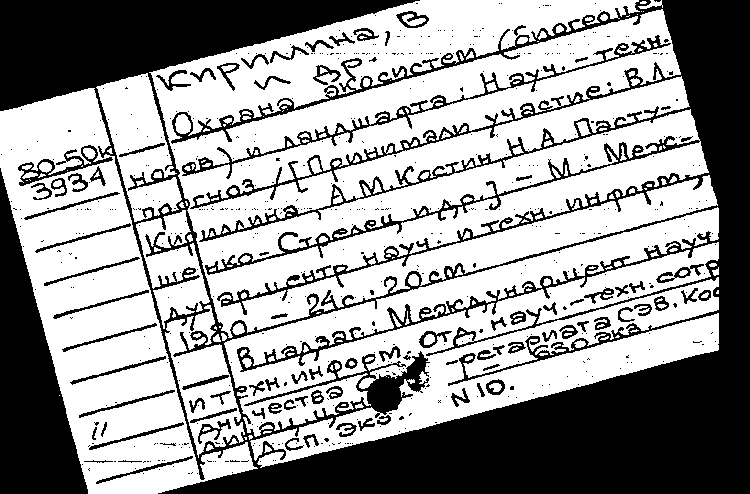 Кириллина, В
и др.
Охрана экосистем (биогеоце-
80-50к
3934
нозов) и ландшафта: Науч.-техн.
прогноз / [Принимали участие: В.Л.
Кириллина, А.М.Костин, Н.А. Пасту-
шенко-Стрелец и др.] - М.: Меж-
дунар. центр науч. и техн. информ.,
1980. - 24с.; 20см.
В надзаг.: Междунар. цент науч.
и техн. информ. Отд. науч.-техн. сотр
дничества Секретариата СЭВ. Коо
динац. цен
ДСП. Экз. N 10.
630 экз.
11